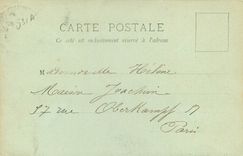 CARTE POSTALE
Ce côté est exclusivement réservé à l'adresse
Mademoiselle Hélène
Maison Joachim
57 rue Oberkampf 57
Paris